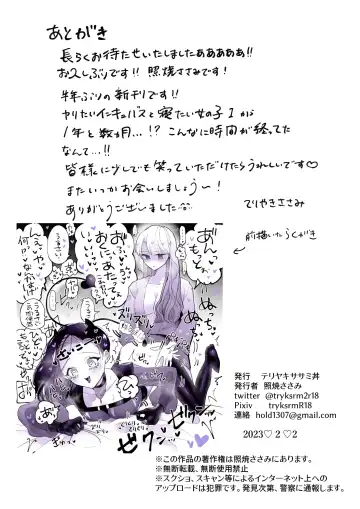 あとがき
長らくお待たせいたしましたあああああ!!
お久しぶりです!! 照焼ささみです!
半年ぶりの新刊です!!
ヤりたいインキュバスと寝たい女の子1から
1年と数ヵ月…!? こんなに時間が経ってた
なんて…!!
皆様に少しでも笑っていただけたらうれしいです♡
またいつかお会いしましょう〜!
ありがとうございました
てりやきささみ
前描いたらくがき
発行 テリヤキササミ丼
発行者 照焼ささみ
twitter @tryksrm2r18
Pixiv tryksrmR18
連絡 hold1307@gmail.com
2023♡2♡2
※この作品の著作権は照焼ささみにあります。
※無断転載、無断使用禁止
※スクショ、スキャン等によるインターネット上への
アップロードは犯罪です。発見次第、警察に通報します。